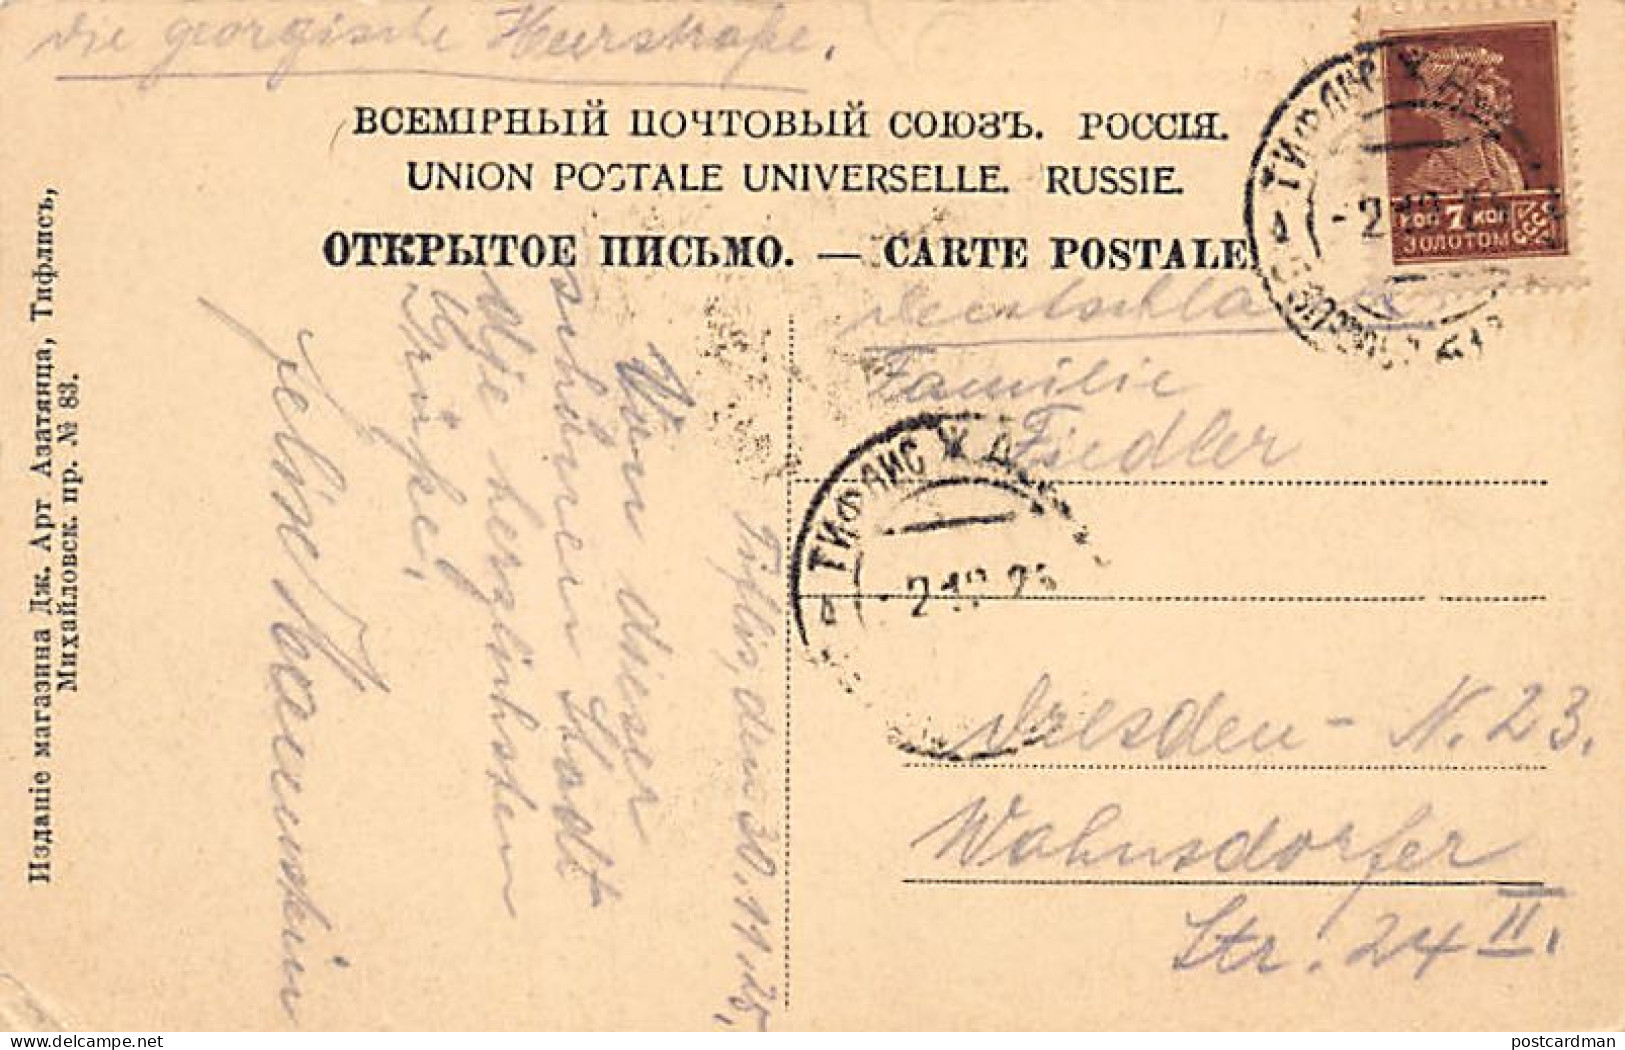 Die georgische Heerstraße.
ВСЕМІРНЫЙ ПОЧТОВЫЙ СОЮЗЪ. РОССІЯ.
UNION POSTALE UNIVERSELLE. RUSSIE.
ОТКРЫТОЕ ПИСЬМО. — CARTE POSTALE
Изданіе магазина Дж. Арт Азатянца, Тифлисъ,
Михайловск. пр. № 83.
КОП 7 КОП
ЗОЛОТОМ
СССР
ТИФЛИС Ж Д
-2 10 25
ТИФЛИС Ж Д
-2 10 25
Tiflis, den 30.11.25,
Von dieser
schönen Stadt
die herzlichsten
Grüße,
Deutschland
Familie
Fiedler
Dresden - N. 23.
Wahnsdorfer
Str. 24 II.
postcardman